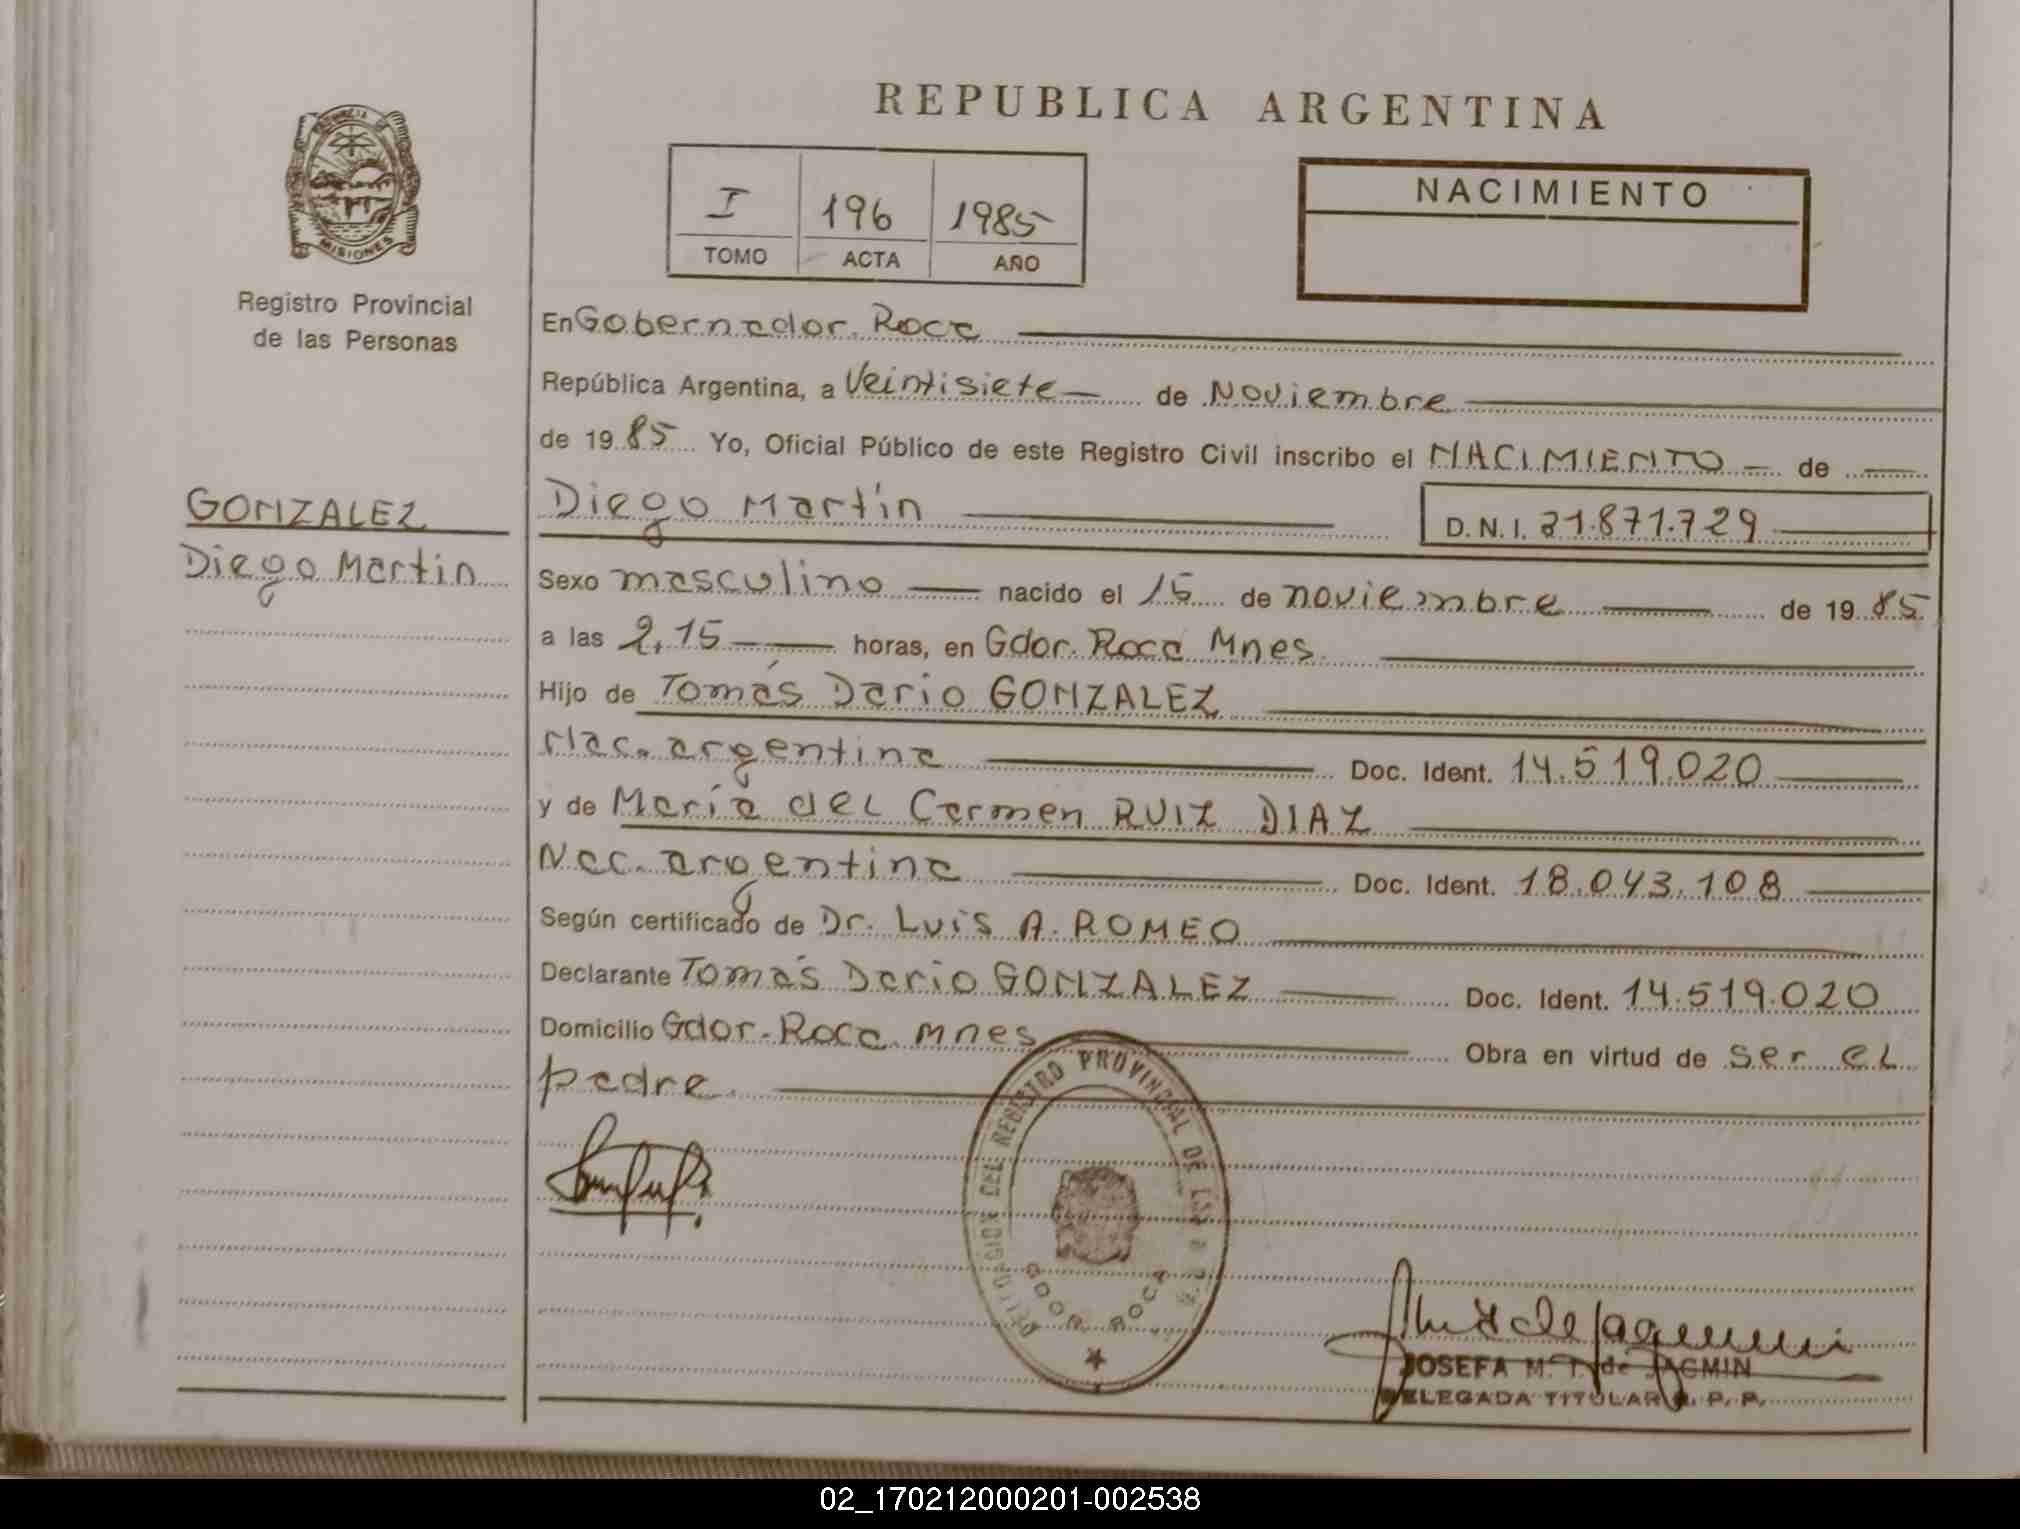 REPUBLICA ARGENTINA
PROVINCIA DE
MISIONES
Registro Provincial
de las Personas
I 196 1985
TOMO ACTA AÑO
NACIMIENTO
En Gobernador Roca
República Argentina, a Veintisiete de Noviembre
de 1985 Yo, Oficial Público de este Registro Civil inscribo el NACIMIENTO de
GONZALEZ
Diego Martin
Diego Martín D.N.I. 31.871.729
Sexo masculino nacido el 15 de noviembre de 1985
a las 2,15 horas, en Gdor. Roca Mnes.
Hijo de Tomás Dario GONZALEZ
Nac. argentina Doc. Ident. 14.519.020
y de María del Carmen RUIZ DIAZ
Nac. argentina Doc. Ident. 18.043.108
Según certificado de Dr. Luis A. ROMEO
Declarante Tomás Dario GONZALEZ Doc. Ident. 14.519.020
Domicilio Gdor. Roca. Mnes Obra en virtud de ser el
padre.
DELEGACION DEL REGISTRO PROVINCIAL DE LAS
GDOR. ROCA
JOSEFA M. T. de JACMIN
DELEGADA TITULAR R. P. P.
02_170212000201-002538